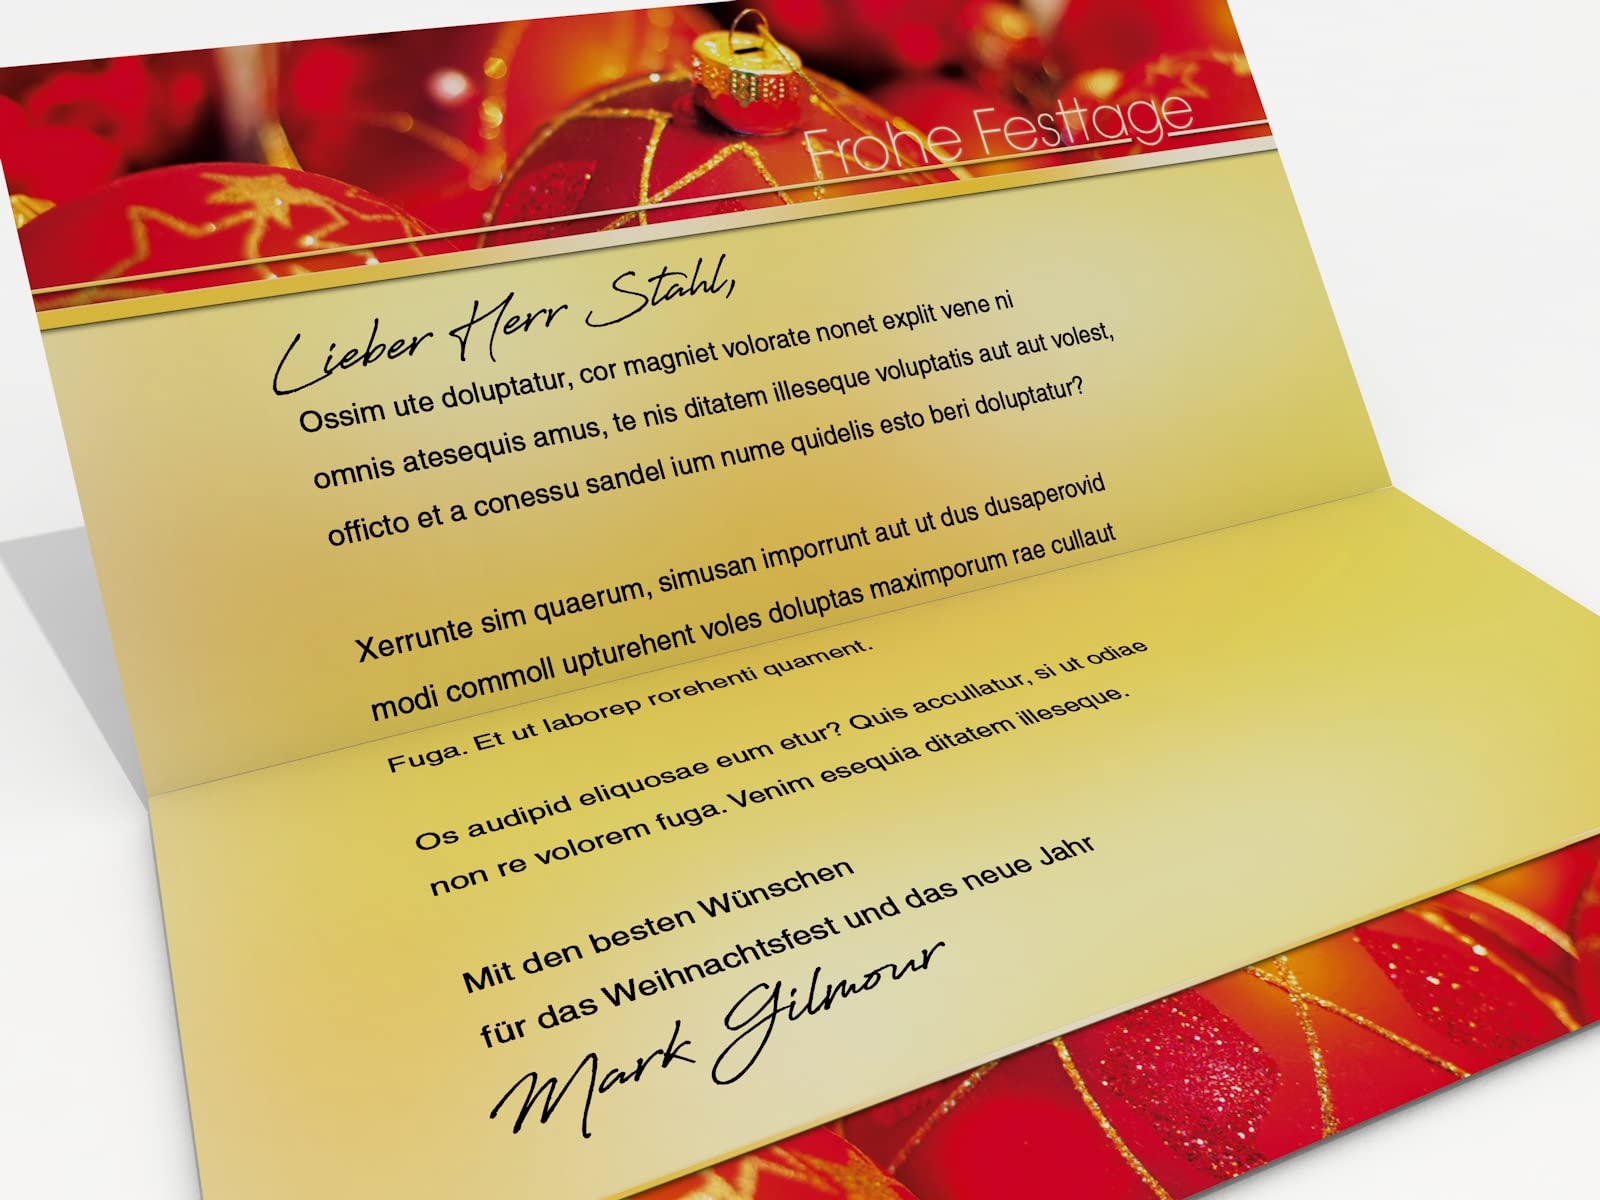 Frohe Festtage
Lieber Herr Stahl,
Ossim ute doluptatur, cor magniet volorate nonet explit vene ni
omnis atesequis amus, te nis ditatem illeseque voluptatis aut aut volest,
officto et a conessu sandel ium nume quidelis esto beri doluptatur?
Xerrunte sim quaerum, simusan imporrunt aut ut dus dusaperovid
modi commoll upturehent voles doluptas maximporum rae cullaut
Fuga. Et ut laborep rorehenti quament.
Os audipid eliquosae eum etur? Quis accullatur, si ut odiae
non re volorem fuga. Venim esequia ditatem illeseque.
Mit den besten Wünschen
für das Weihnachtsfest und das neue Jahr
Mark Gilmour